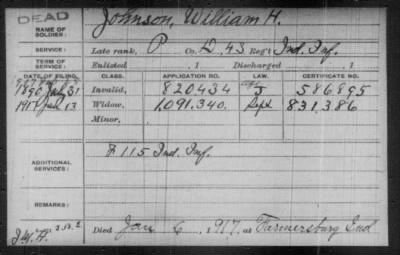 DEAD
NAME OF SOLDIER: Johnson, William H.
SERVICE: Late rank, P Co. D, 43 Reg't Ind. Inf.
TERM OF SERVICE: Enlisted , 1 Discharged , 1
DATE OF FILING. CLASS. APPLICATION NO. LAW. CERTIFICATE NO.
1890 July 31 Invalid, 820434 J 586895
1917 Jan 13 Widow, 1,091.340. Sept 831,386
Minor,
ADDITIONAL SERVICES: F 115 Ind. Inf.
REMARKS:
Died Jan 6, 1917, at Farmersburg Ind